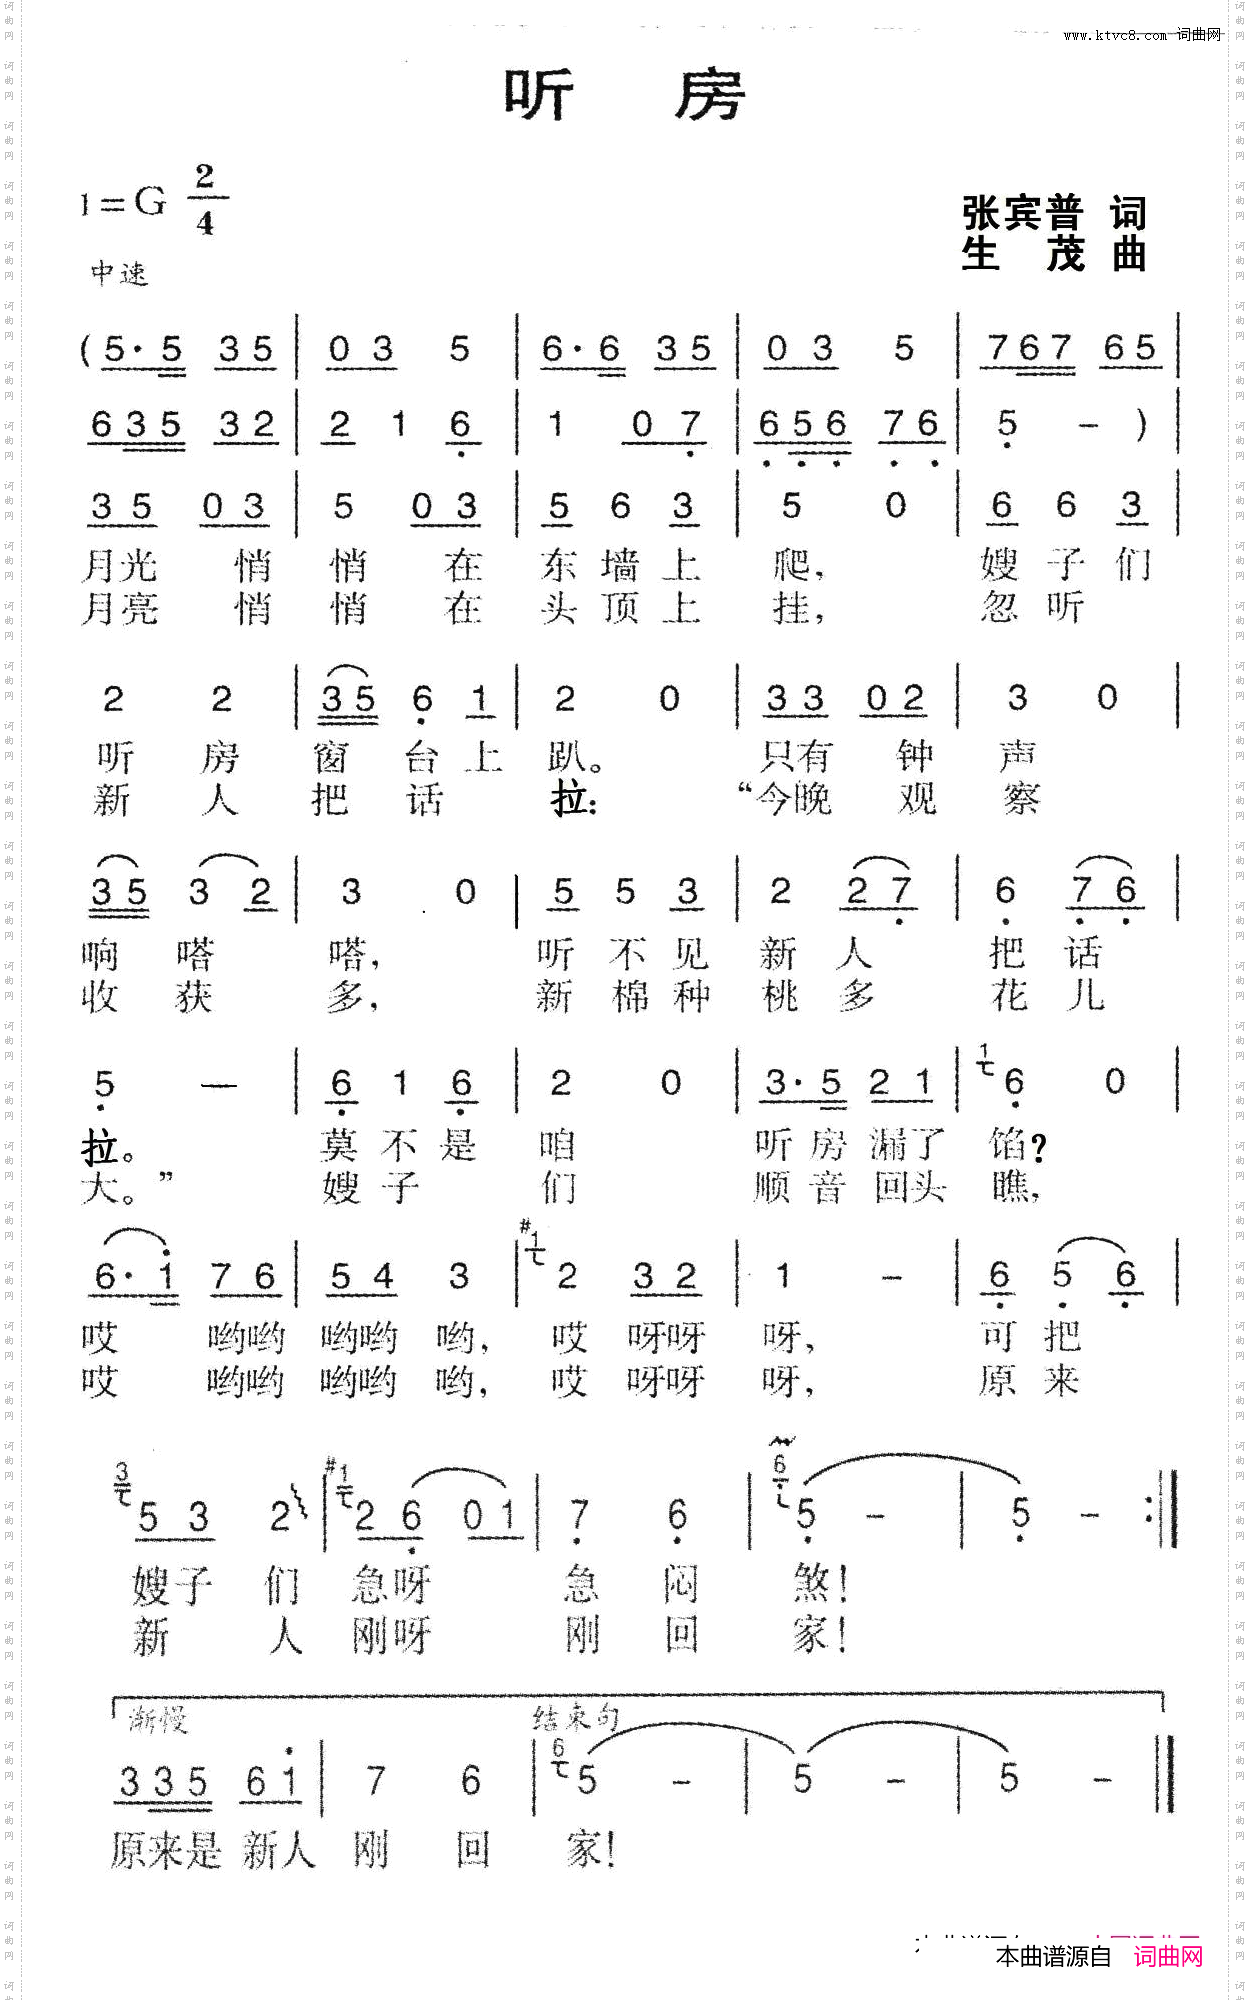 www.ktvc8.com 词曲网
听 房
1=G 2/4
张宾普 词
生 茂 曲
中速
(5·5 35 | 03 5 | 6·6 35 | 03 5 | 767 65 |
635 32 | 2 1 6 | 1 07 | 656 76 | 5 - ) |
35 03 | 5 03 | 5 6 3 | 5 0 | 6 6 3 |
月光 悄 悄 在 东 墙 上 爬, 嫂 子 们
月亮 悄 悄 在 头 顶 上 挂, 忽 听
2 2 | 35 6 1 | 2 0 | 33 02 | 3 0 |
听 房 窗 台 上 趴。 只有 钟 声
新 人 把 话 拉: “今晚 观 察
35 3 2 | 3 0 | 5 5 3 | 2 27 | 6 76 |
响 嗒 嗒, 听 不 见 新 人 把 话
收 获 多, 新 棉 种 桃 多 花 儿
5 — | 6 1 6 | 2 0 | 3·5 21 | 1 6 0 |
拉。 莫 不 是 咱 听 房 漏 了 馅?
大。” 嫂 子 们 顺 音 回 头 瞧,
6·1 76 | 54 3 | #1 2 32 | 1 - | 6 5 6 |
哎 哟哟 哟哟 哟, 哎 呀呀 呀, 可 把
哎 哟哟 哟哟 哟, 哎 呀呀 呀, 原 来
3 53 2 | #1 26 01 | 7 6 | 6 5 - | 5 - :||
嫂子 们 急呀 急 闷 煞!
新 人 刚呀 刚 回 家!
渐慢 结束句
335 61 | 7 6 | 6 5 - | 5 - | 5 - ||
原来是 新人 刚 回 家!
本曲谱源自 词曲网